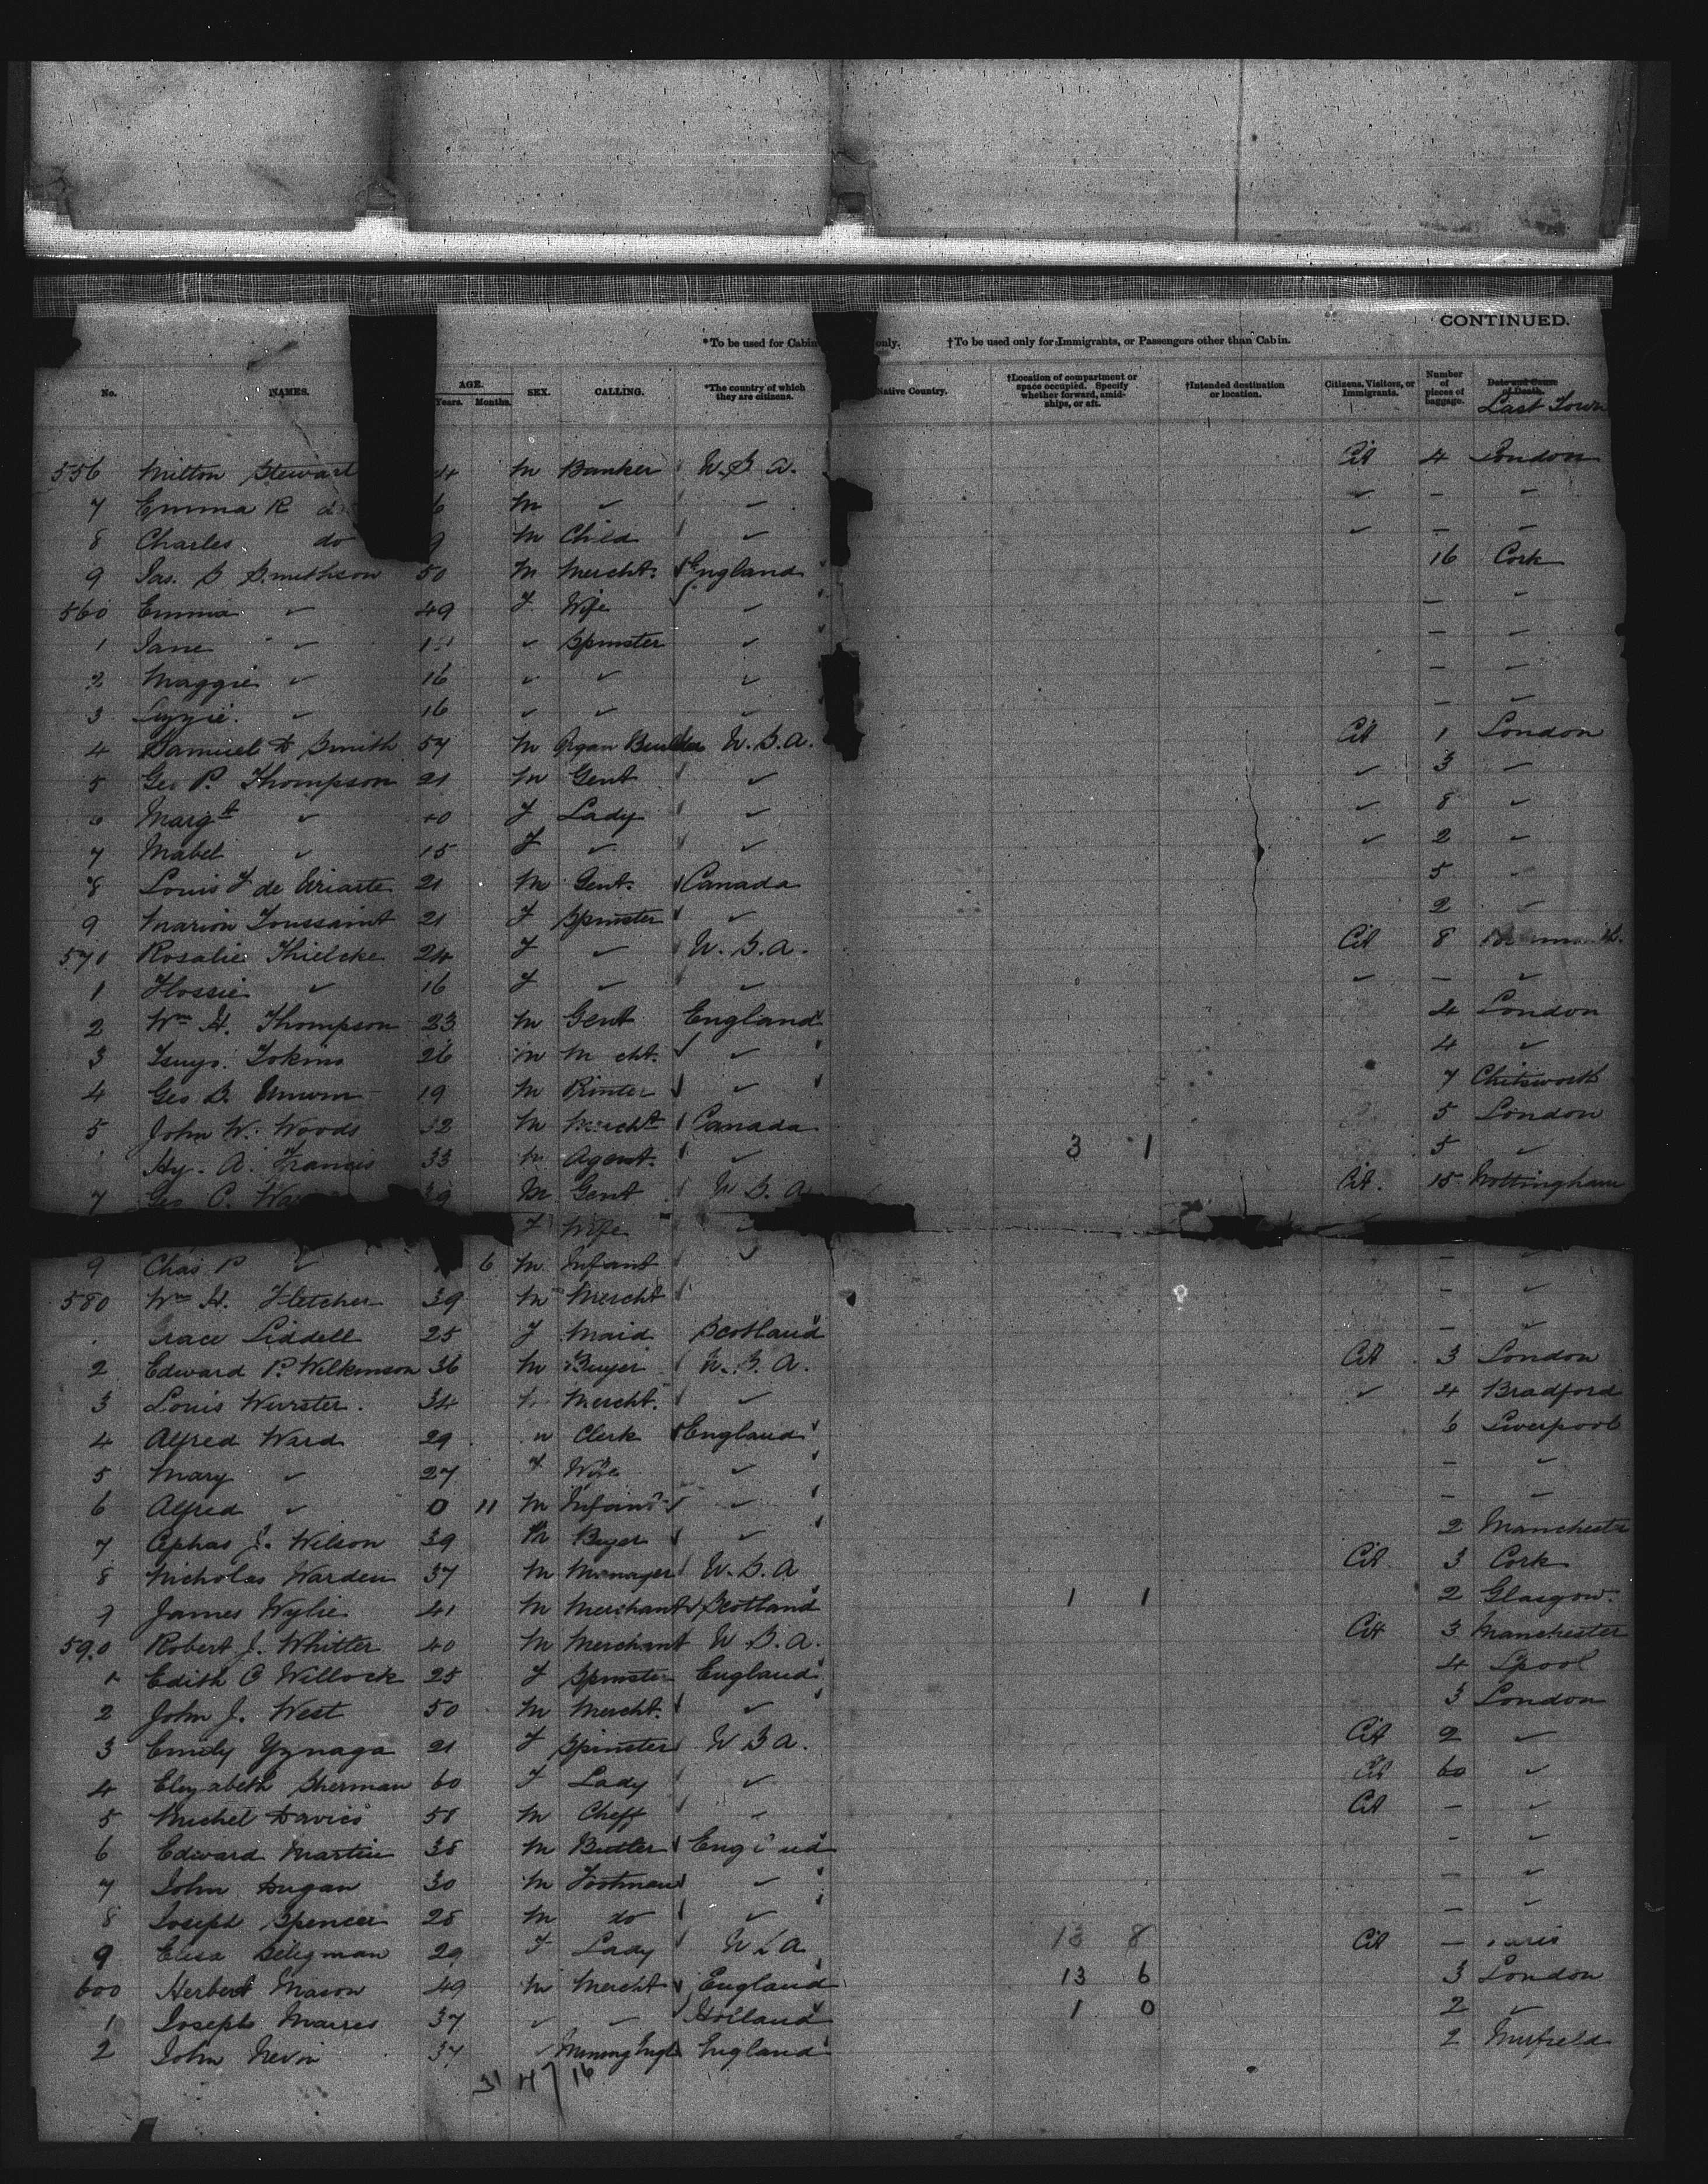 CONTINUED.
*To be used for Cabin only. †To be used only for Immigrants, or Passengers other than Cabin.
No. NAMES. AGE. Years. Months. SEX. CALLING. *The country of which they are citizens. Native Country. †Location of compartment or space occupied. Specify whether forward, amidships, or aft. †Intended destination or location. Citizens, Visitors, or Immigrants. Number of pieces of baggage. Date and Cause of Death. Last Town
556 Milton Stewart 4 M Banker U.S.A. Cit 4 London
7 Emma R d 6 M ✓ ✓ ✓ – ✓
8 Charles do 9 M Child ✓ ✓ – ✓
9 Jas. S Smithson 50 M Mercht. England 16 Cork
560 Emma ✓ 49 F Wife ✓ – ✓
1 Jane ✓ ✓ Spinster ✓ – ✓
2 Maggie ✓ 16 ✓ ✓ ✓ – ✓
3 Lizzie. ✓ 16 ✓ ✓ ✓ – ✓
4 Samuel D Smith 57 M Organ Builder U.S.A. Cit 1 London
5 Geo P. Thompson 21 M Gent ✓ ✓ 3 ✓
Margt ✓ 40 F Lady ✓ ✓ 8 ✓
7 Mabel ✓ 15 F ✓ ✓ ✓ 2 ✓
8 Louis F de Uriarte 21 M Gent. Canada 5 ✓
9 Marion Toussaint 21 F Spinster ✓ 2 ✓
570 Rosalie Thielcke 24 F ✓ U.S.A. Cit 8
1 Flossie ✓ 16 F ✓ ✓ ✓ – ✓
2 Wm H. Thompson 23 M Gent England 4 London
3 26 M M cht. ✓ 4 ✓
4 Geo S. Unwin 19 M Printer ✓ 7 Chitsworth
5 John W. Woods 32 M Mercht Canada 5 London
Hy. A. Francis 33 M Agent. ✓ 3 1 5 ✓
7 Geo C. Wa 39 M Gent U S. A Cit. 15 Nottingham
F Wife ✓
9 Chas P ✓ 6 M Infant – ✓
580 Wm H. Fletcher 39 M Mercht – ✓
race Liddell 25 F Maid Scotland – ✓
2 Edward P. Wilkinson 36 M Buyer U.S.A. Cit 3 London
3 Louis Wurster. 34 Mercht. ✓ ✓ 4 Bradford
4 Alfred Ward 29 Clerk England 6 Liverpool
5 Mary ✓ 27 F Wife ✓ – ✓
6 Alfred ✓ 0 11 M Infant ✓ – ✓
7 Cephas J. Wilson 39 M Buyer ✓ 2 Manchester
8 Nicholas Warden 37 M Manager U.S.A Cit 3 Cork
9 James Wylie 41 M Merchant Scotland 1 1 2 Glasgow.
590 Robert J. Whitter 40 M Merchant U S.A. Cit 3 Manchester
1 Edith C Willock 25 F Spinster England 4 Lpool
2 John J. West 50 M Mercht. ✓ 3 London
3 Emily Yznaga 21 F Spinster U S A. Cit 2 ✓
4 Elizabeth Sherman 60 F Lady ✓ Cit 60 ✓
5 Michel Davics 58 M Cheff ✓ Cit – ✓
6 Edward Martin 38 M Butler Eng nd – ✓
7 John Dugan 30 M Footman ✓ – ✓
8 Joseph Spencer 28 M do ✓ – ✓
9 Elisa Seligman 29 F Lady U S A 13 8 Cit – aris
600 Herbert Mason 49 M Mercht England 13 6 3 London
1 Joseph Marres 37 ✓ – Holland 1 0 2 ✓
2 John Nevin 37 ✓ Mining Engr England 2 Mirfield
31 H 16